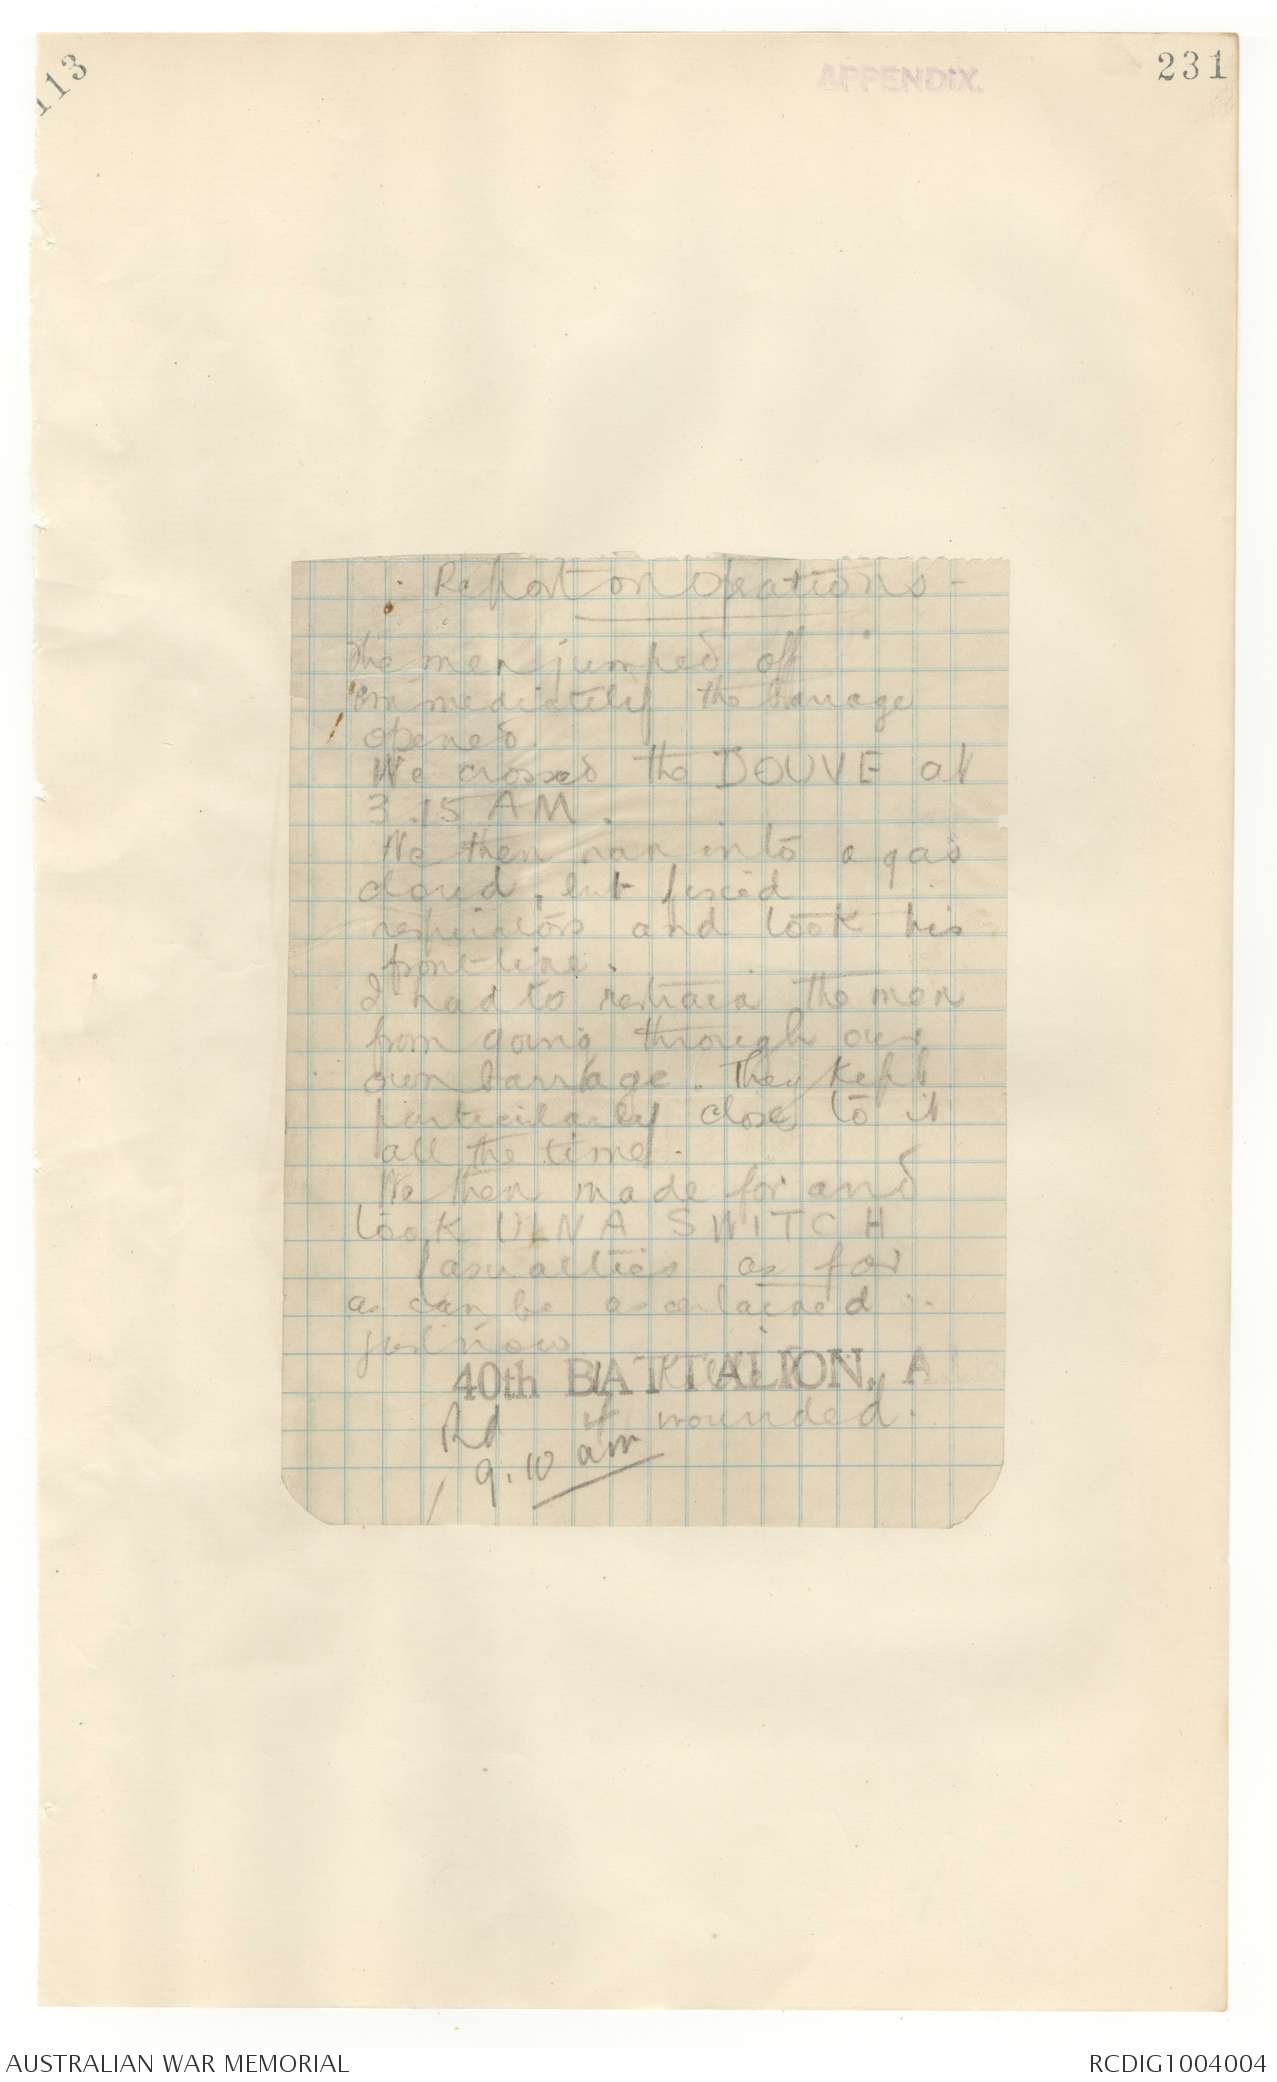 113
APPENDIX.
231
Report on Operations -
The men jumped off
immediately the barrage
opened.
We crossed the DOUVE at
3.15 AM.
We then ran into a gas
cloud, but fixed
respirators and took his
front-line.
I had to restrain the men
from going through our
own barrage. They kept
particularly close to it
all the time.
We then made for and
took ULNA SWITCH
Casualties as far
as can be ascertained
just now
40th BATTALION, A
wounded.
Rd
9.10 am
AUSTRALIAN WAR MEMORIAL
RCDIG1004004